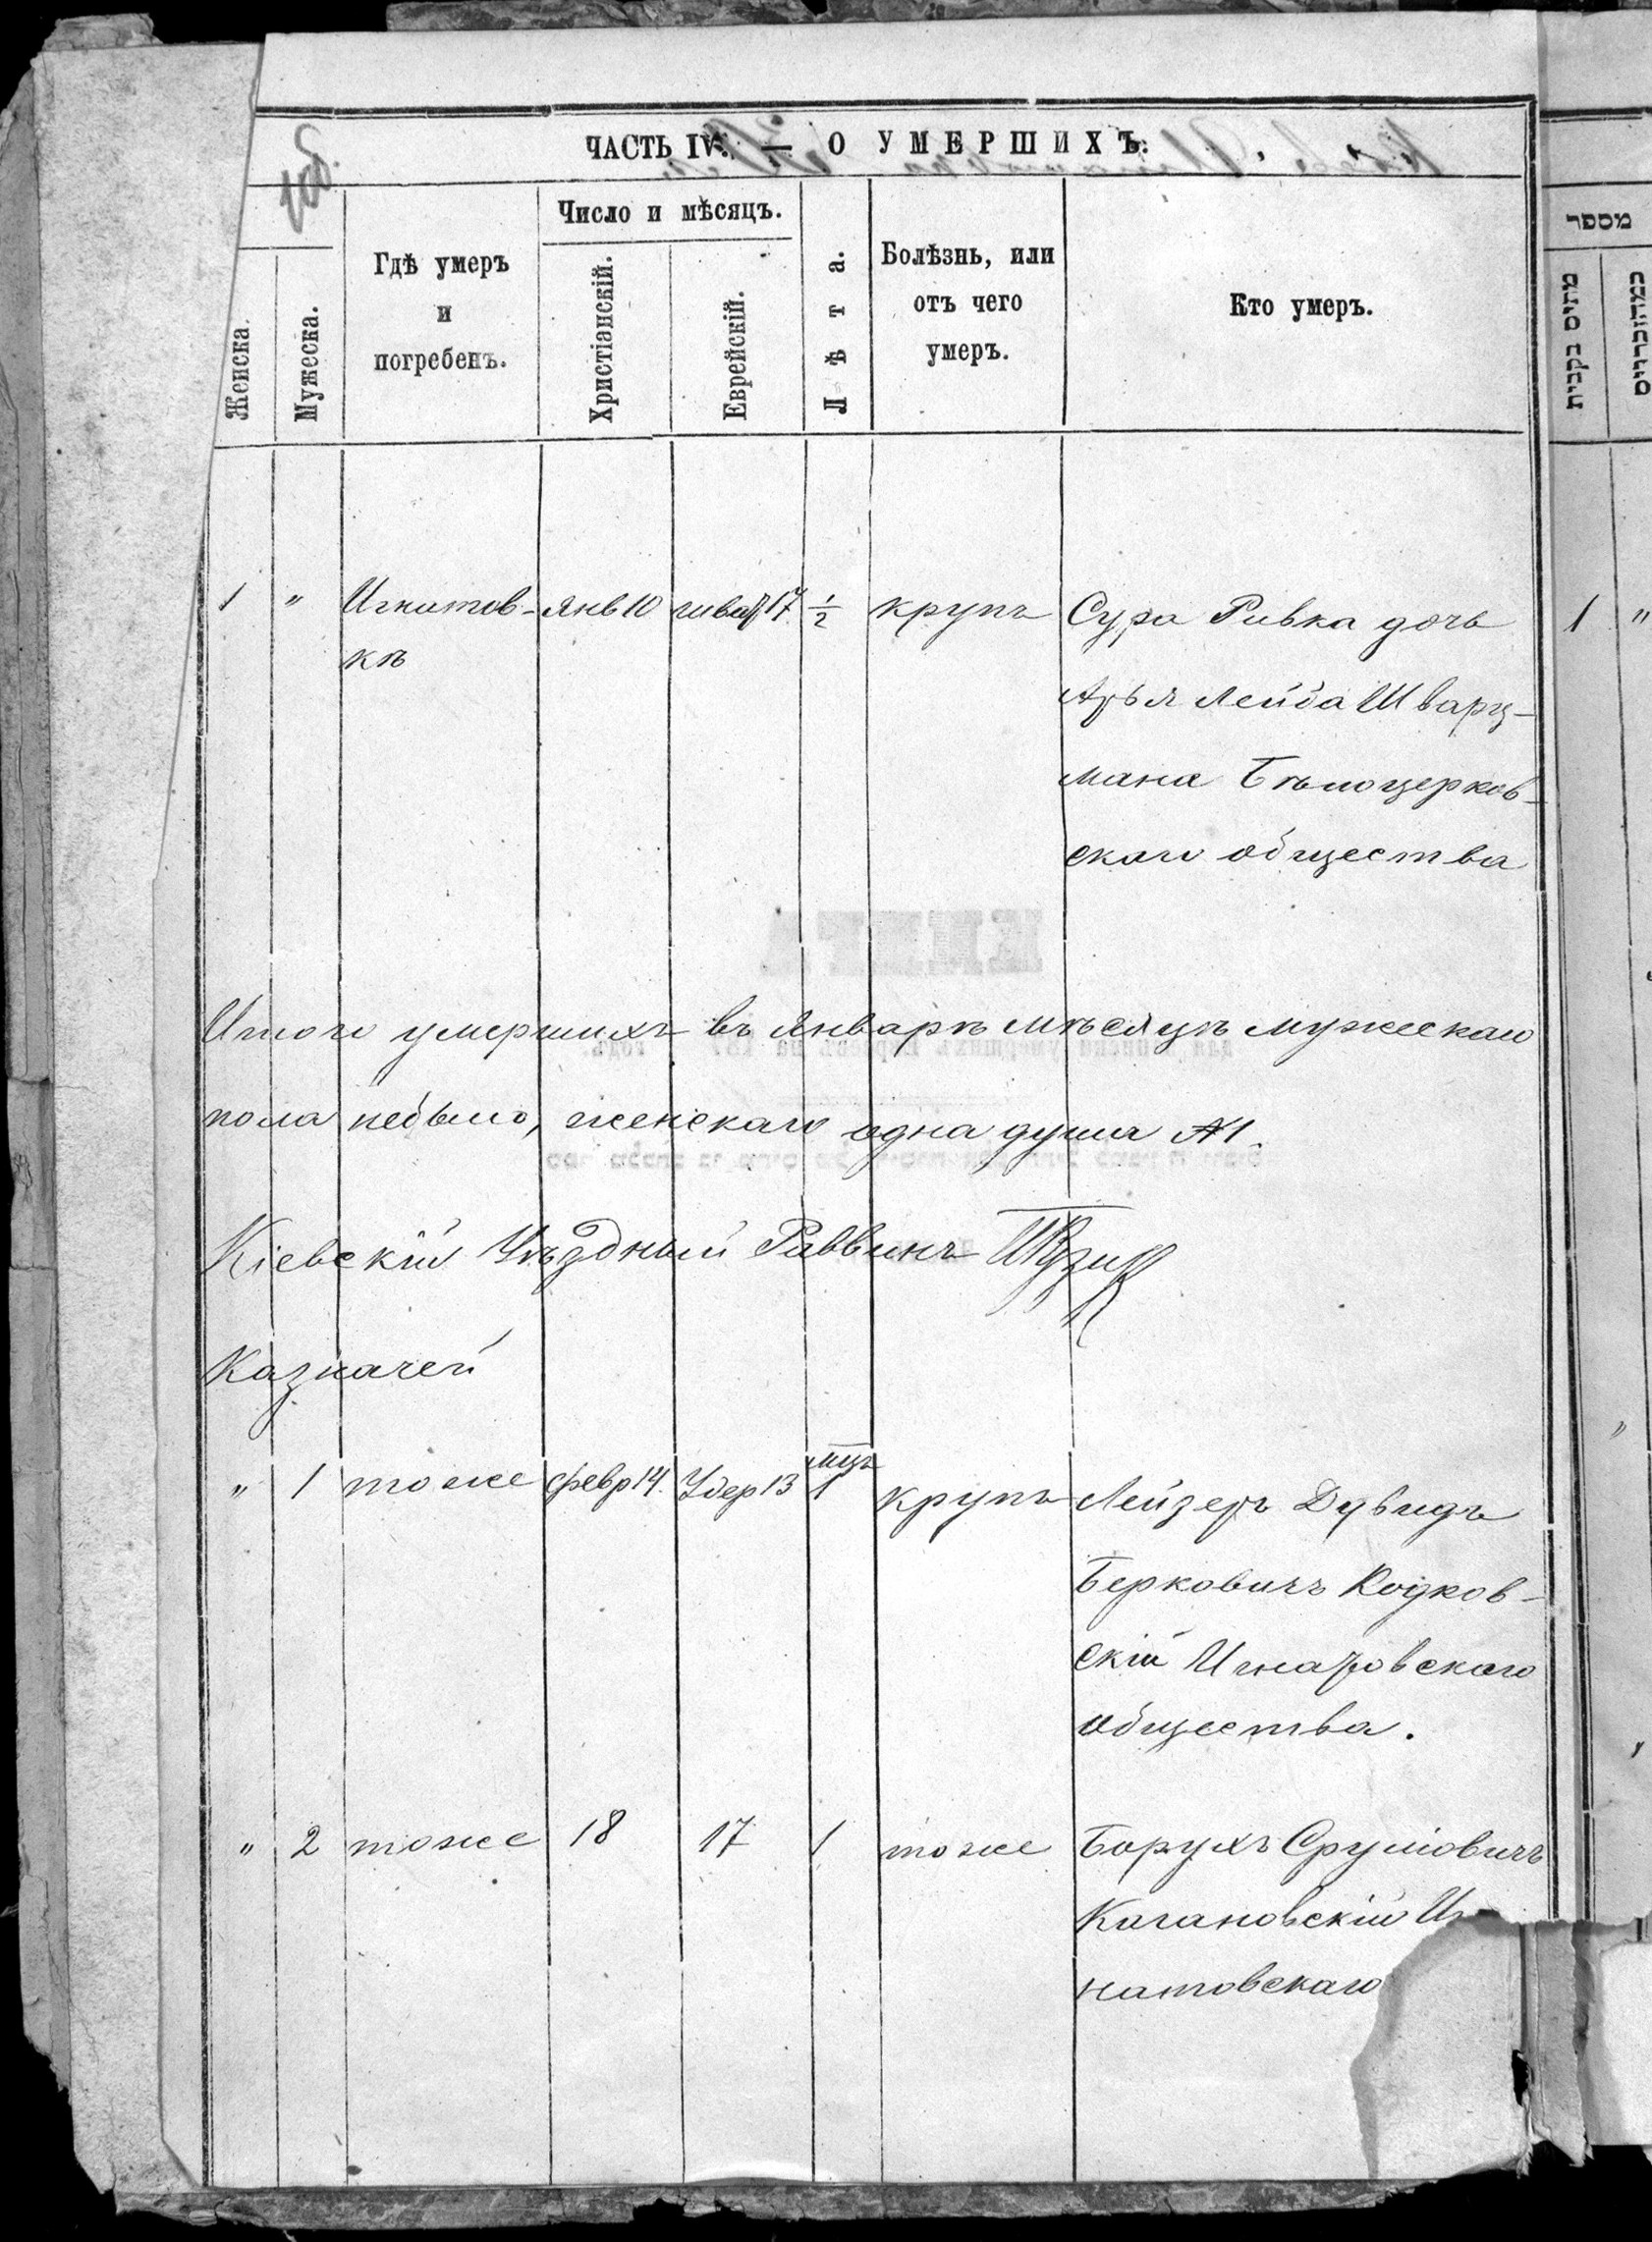 ЧАСТЬ IV. — О УМЕРШИХЪ.
Женска.
Мужеска.
Гдѣ умеръ
и
погребенъ.
Число и мѣсяцъ.
Христіанскій.
Еврейскій.
Лѣта.
Болѣзнь, или
отъ чего
умеръ.
Кто умеръ.
מספר
1 " Игнатов- Янв 10 17 ½ крупъ Сура Ривка дочь
кѣ
Арья Лейба Шварц-
мана Бѣлоцерков-
скаго общества
1 "
Итого умершихъ въ Январѣ мѣсяцѣ мужескаго
пола небыло, женскаго одна душа №1.
Кіевскій Уѣздный Раввинъ
Казначей
" 1 тоже февр 14. Удер 13 мцъ 1 крупъ Лейзеръ Дувидъ
Берковичъ
скій Игнатовскаго
общества.
" 2 тоже 18 17 1 тоже Борухъ Срулiовичъ
Кагановскій Иг
натовскаго
КНИГА